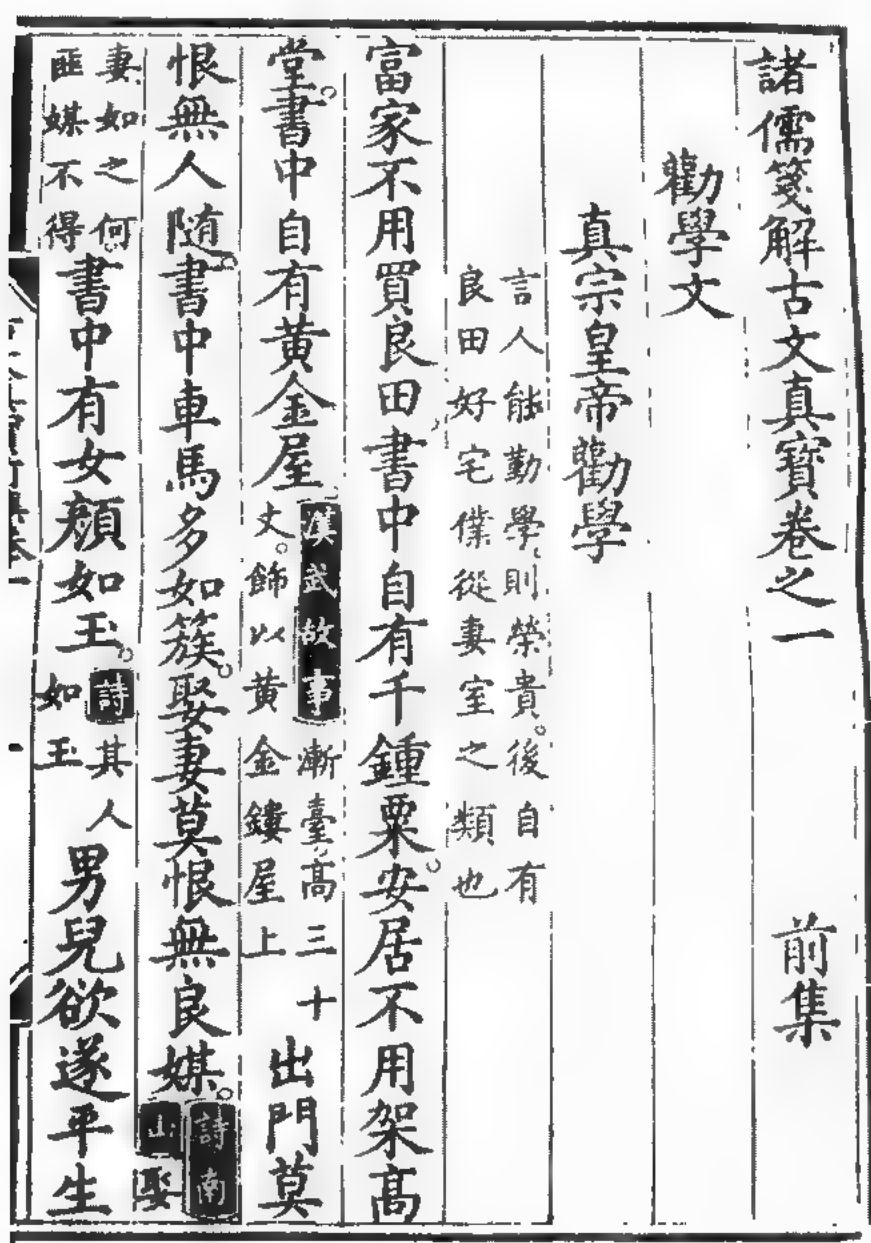 諸儒箋解古文真寶卷之一 前集
勸學文
真宗皇帝勸學
言人能勤學則榮貴後自有
良田好宅僕從妻室之類也
富家不用買良田書中自有千鍾粟安居不用架高
堂書中自有黄金屋
漢武故事漸臺高三十
丈飾以黄金鏤屋上
出門莫
恨無人随書中車馬多如簇娶妻莫恨無良媒
詩南
山娶
妻如之何
匪媒不得
書中有女顔如玉
詩其人
如玉
男兒欲遂平生